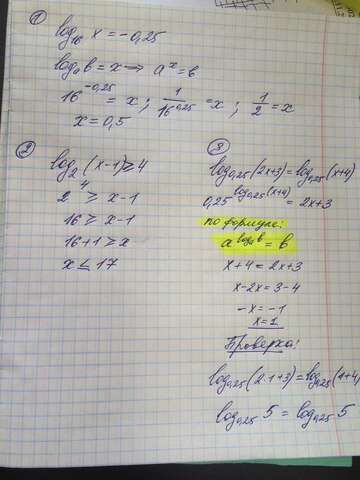 1
log₁₆ x = -0,25
logₐ b = x ⟹ aˣ = b
16^-0,25 = x ; 1/16^0,25 = x ; 1/2 = x
x = 0,5
2
log₂ (x-1) ≥ 4
2⁴ ≥ x-1
16 ≥ x-1
16+1 ≥ x
x ≤ 17
8
log₀,₂₅ (2x+3) = log₀,₂₅ (x+4)
0,25^log₀,₂₅ (x+4) = 2x+3
по формуле:
a^logₐ b = b
x+4 = 2x+3
x-2x = 3-4
-x = -1
x = 1
Проверка:
log₀,₂₅ (2·1+3) = log₀,₂₅ (1+4)
log₀,₂₅ 5 = log₀,₂₅ 5